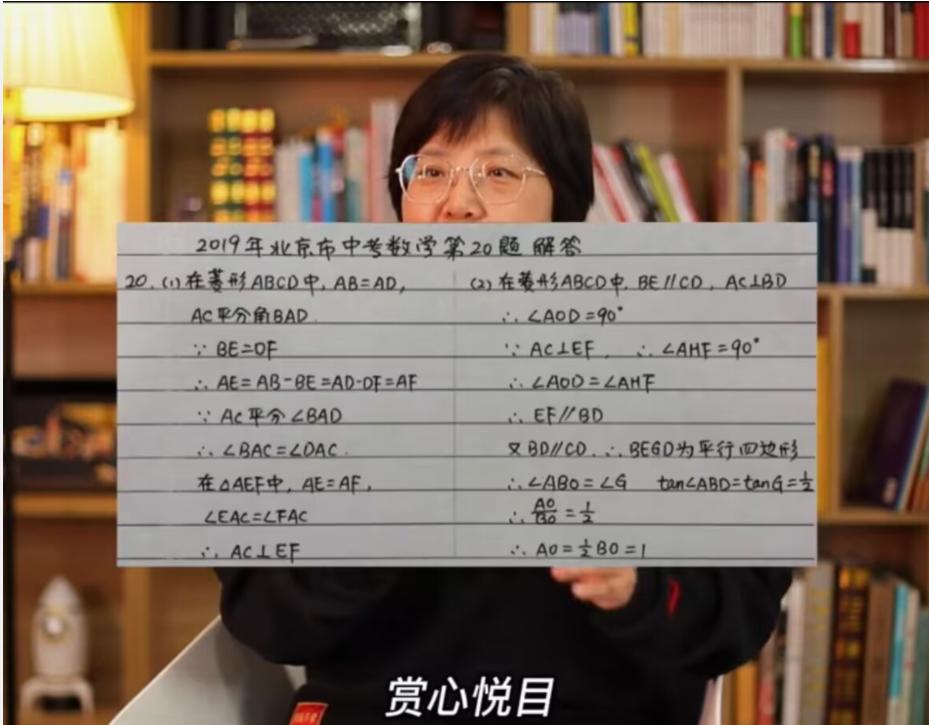 2019年北京市中考数学第20题解答
20.(1)在菱形ABCD中,AB=AD,
AC平分角BAD.
∵ BE=DF
∴ AE=AB-BE=AD-DF=AF
∵ AC平分∠BAD
∴ ∠BAC=∠DAC.
在△AEF中,AE=AF,
∠EAC=∠FAC
∴ AC⊥EF
(2)在菱形ABCD中,BE//CD,AC⊥BD
∴ ∠AOD=90°
∵ AC⊥EF,∴ ∠AHF=90°
∴ ∠AOD=∠AHF
∴ EF//BD
又BD//CD.∴ BEGD为平行四边形
∴ ∠ABO=∠G tan∠ABD=tanG=1/2
∴ AO/BO=1/2
∴ AO=1/2BO=1
赏心悦目